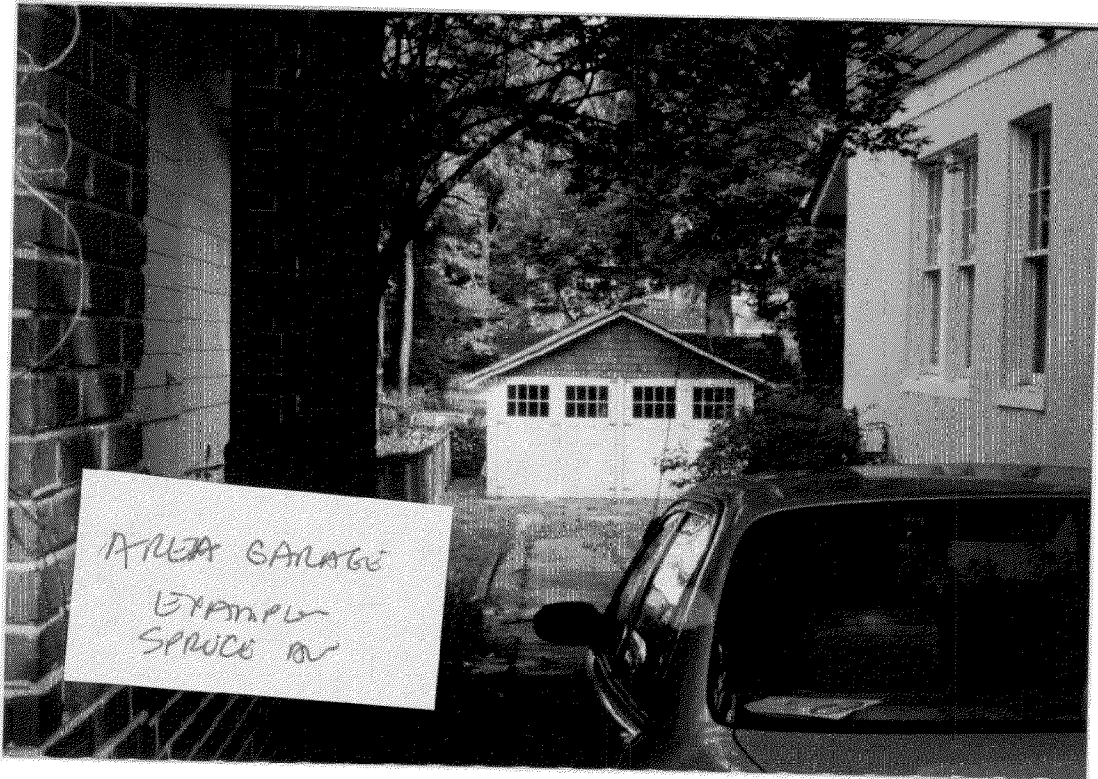 AREA GARAGE
EXAMPLE
SPRUCE AV